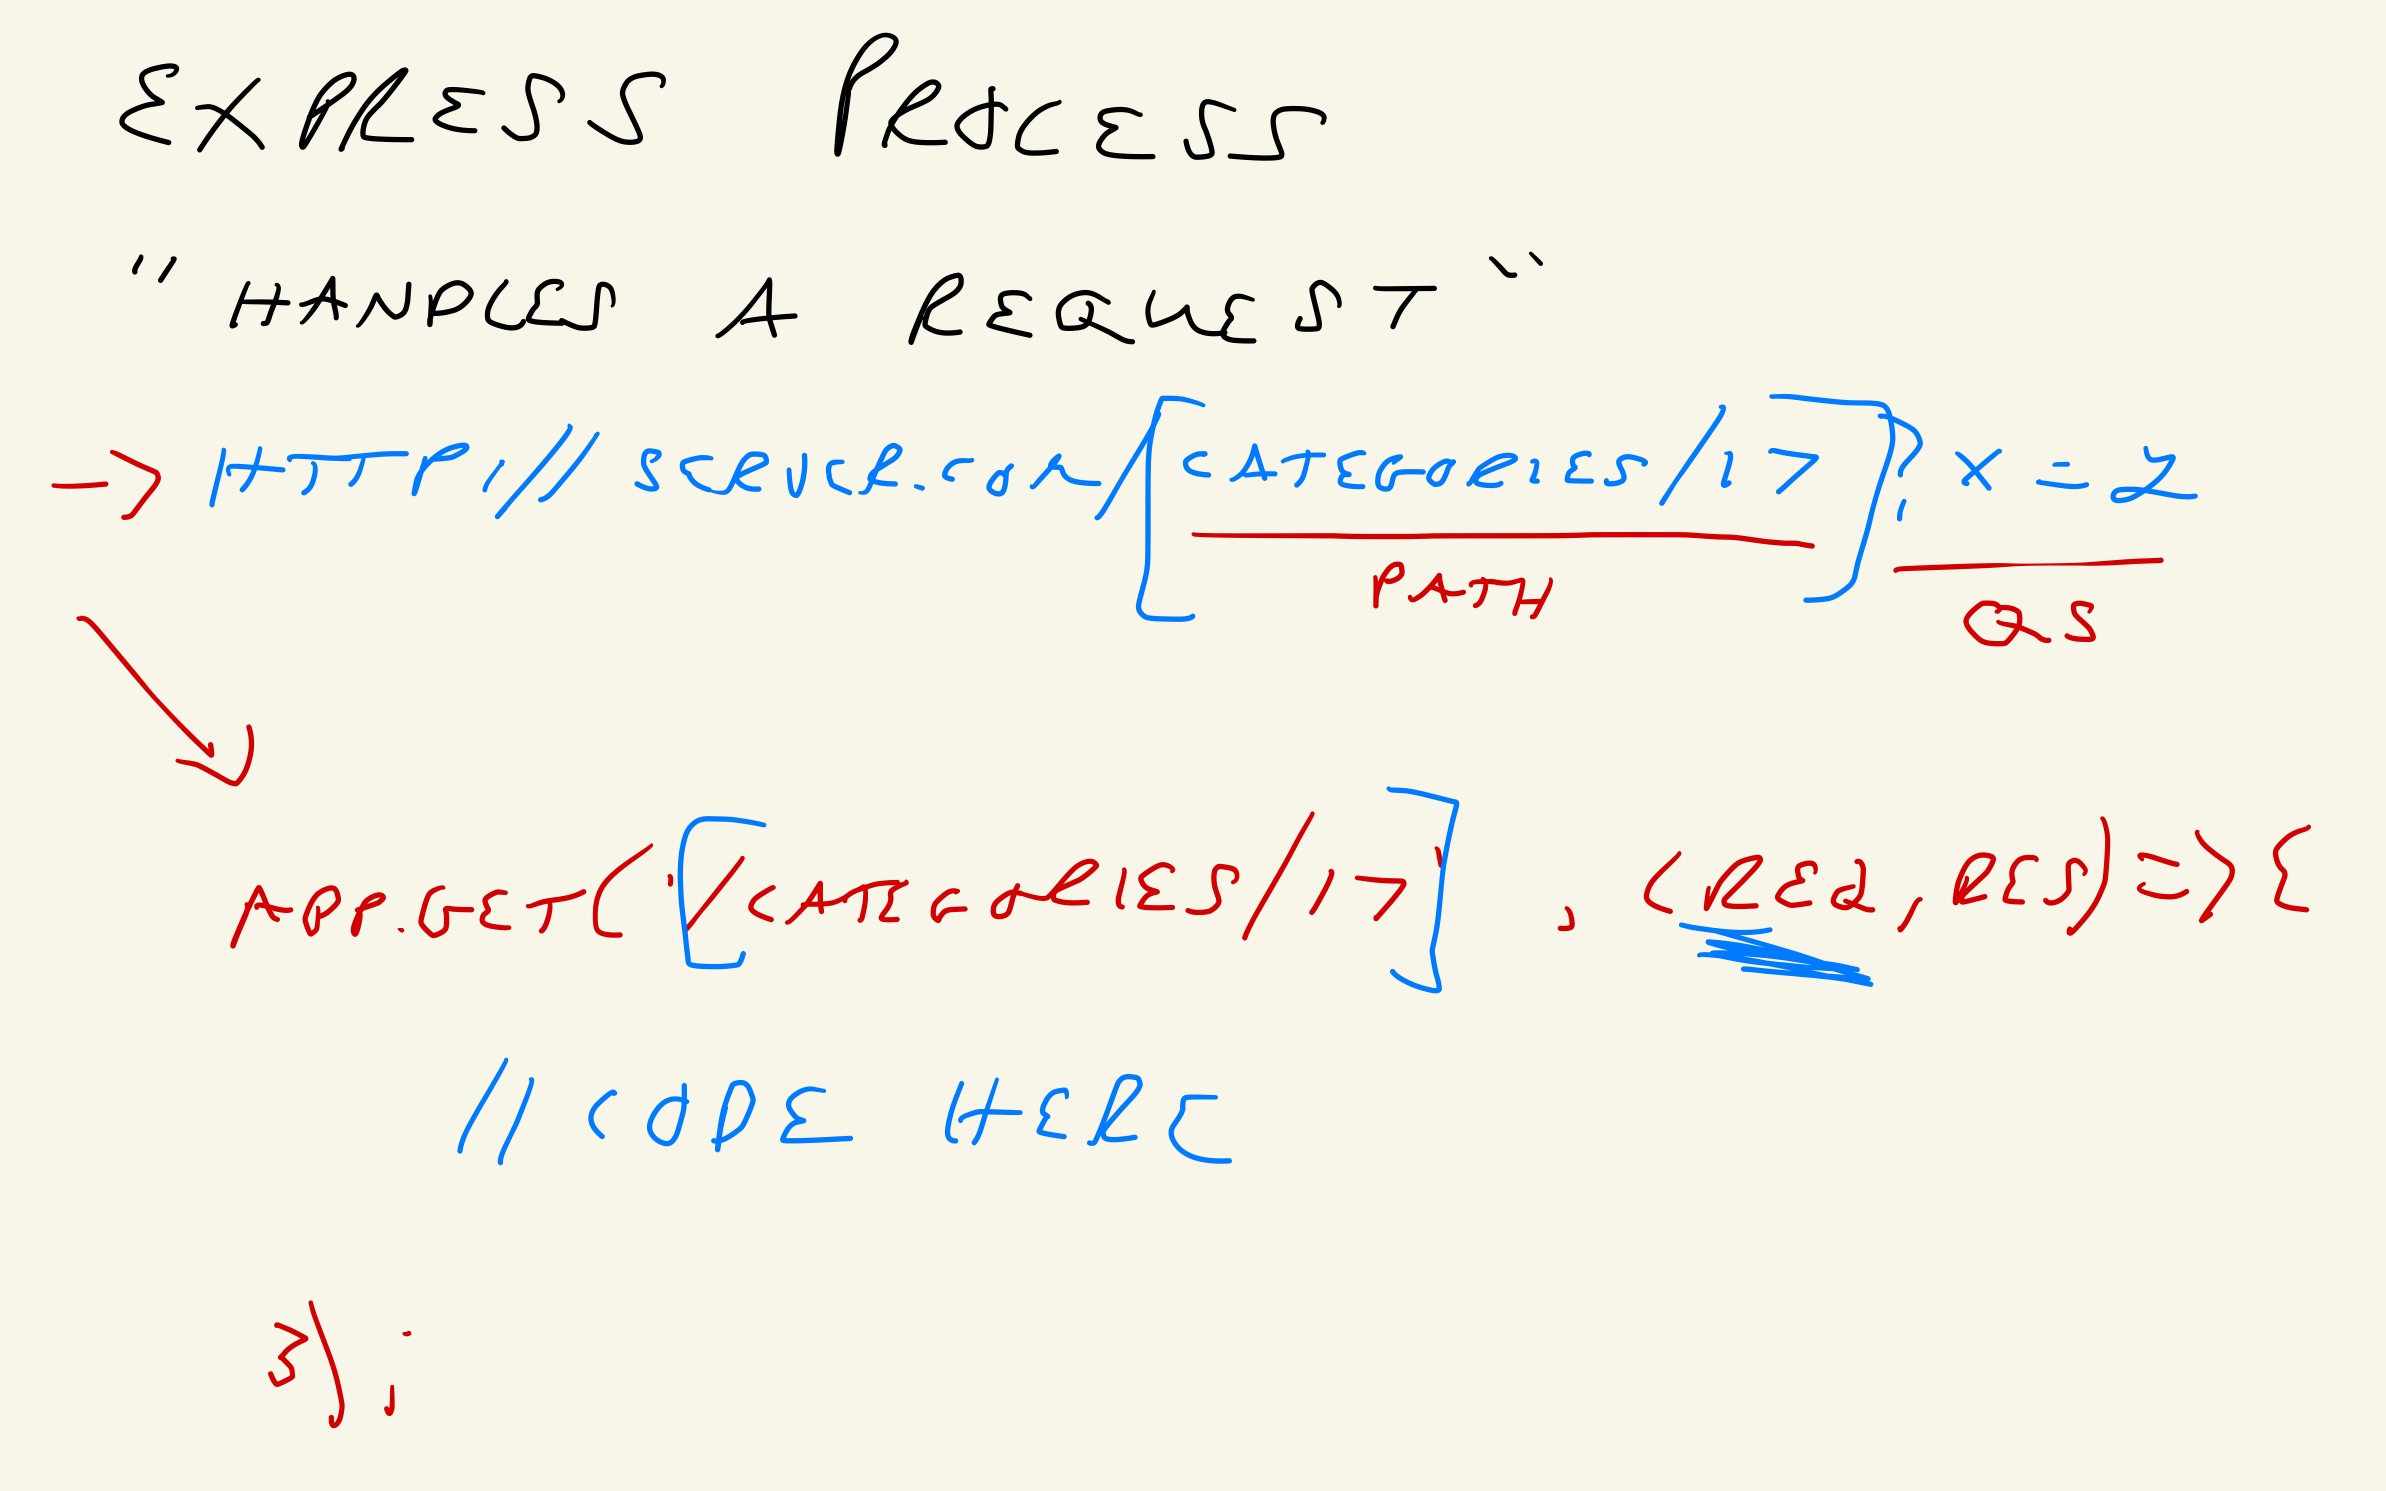 EXPRESS PROCESS
"HANDLES A REQUEST"
→ HTTP://SERVER.COM/[CATEGORIES/17]?X=2
PATH
QS
APP.GET('[/CATEGORIES/17]', (REQ,RES)=>{
// CODE HERE
});